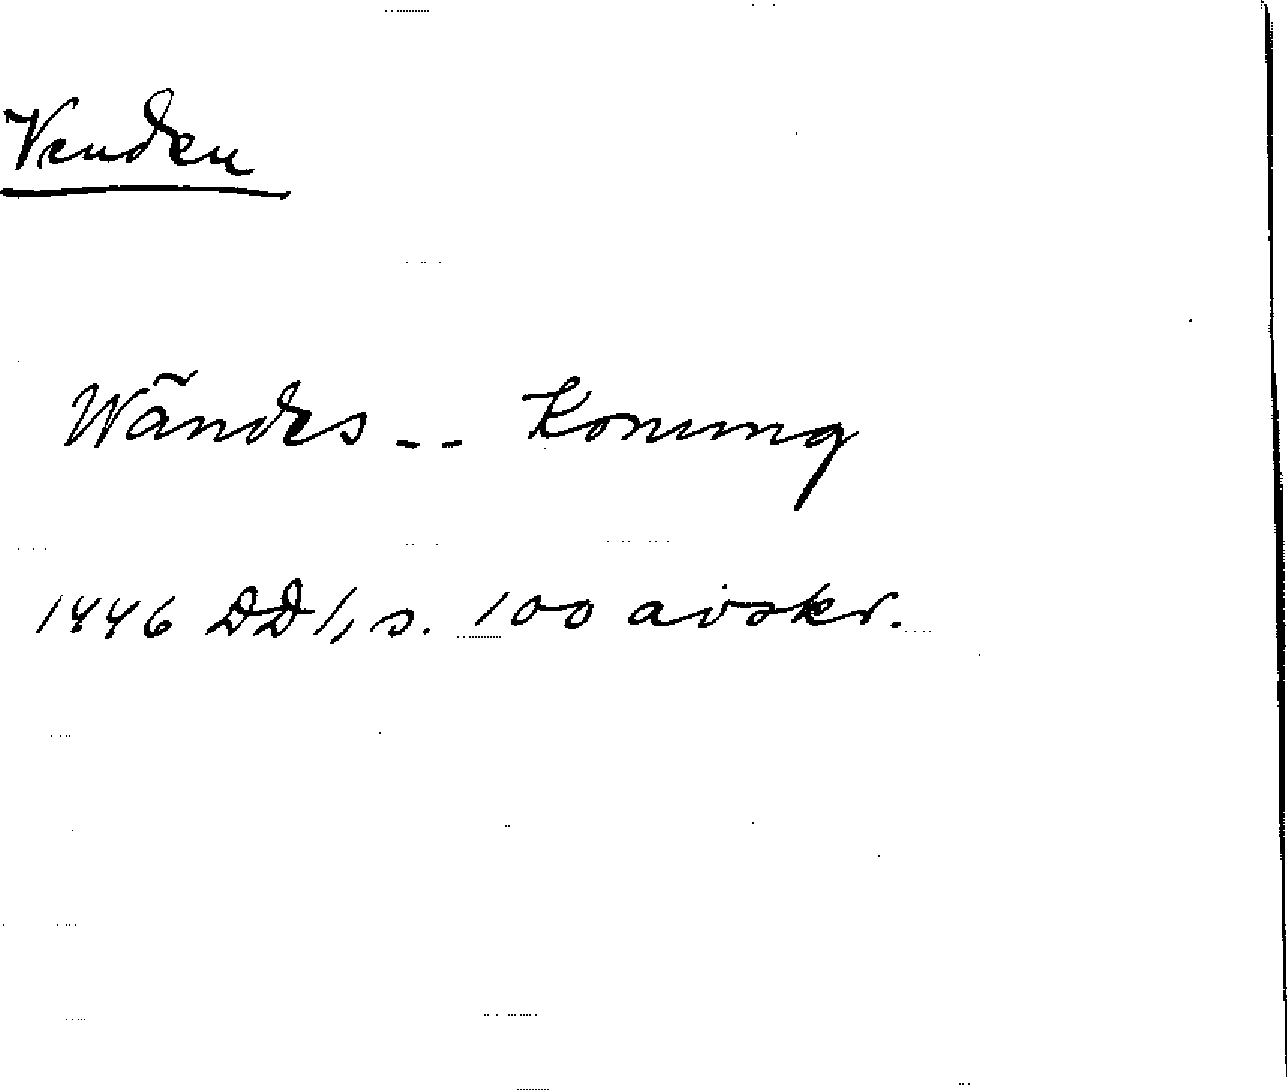 Venden
Wändes -- Konung
1446 DD 1, s. 100 avskr.